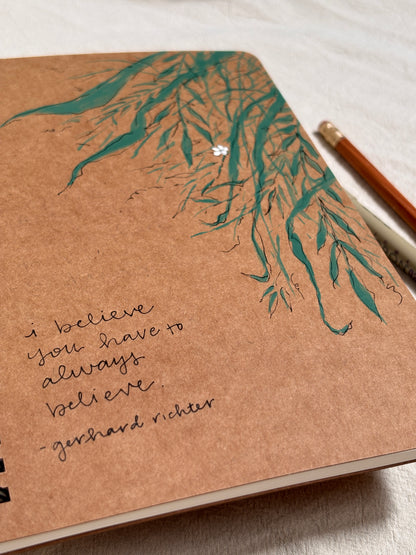 i believe
you have to
always
believe.
-gerhard richter